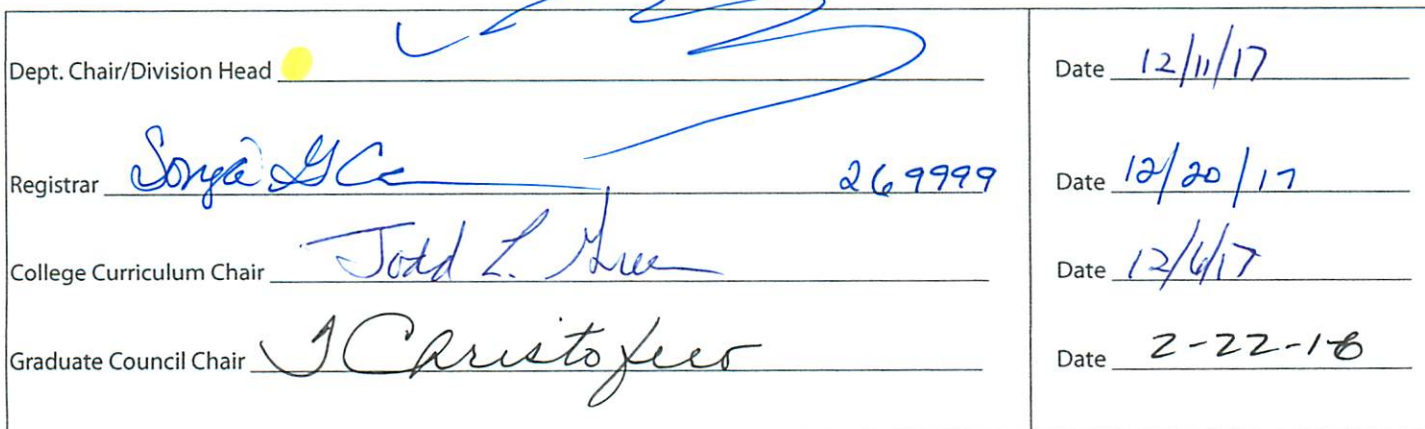 Dept. Chair/Division Head Date 12/11/17
Registrar Sonja G 269999 Date 12/20/17
College Curriculum Chair Todd L. Green Date 12/6/17
Graduate Council Chair Date 2-22-18